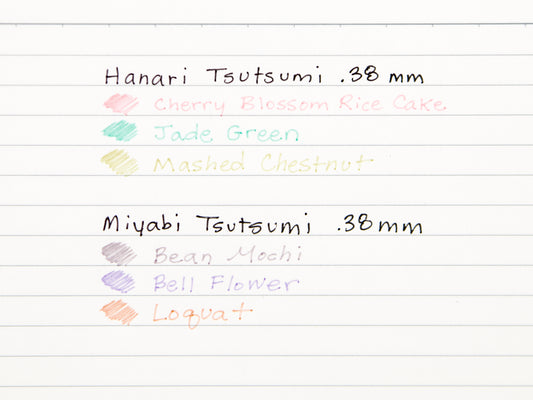 Hanari Tsutsumi .38 mm
Cherry Blossom Rice Cake
Jade Green
Mashed Chestnut
Miyabi Tsutsumi .38 mm
Bean Mochi
Bell Flower
Loquat